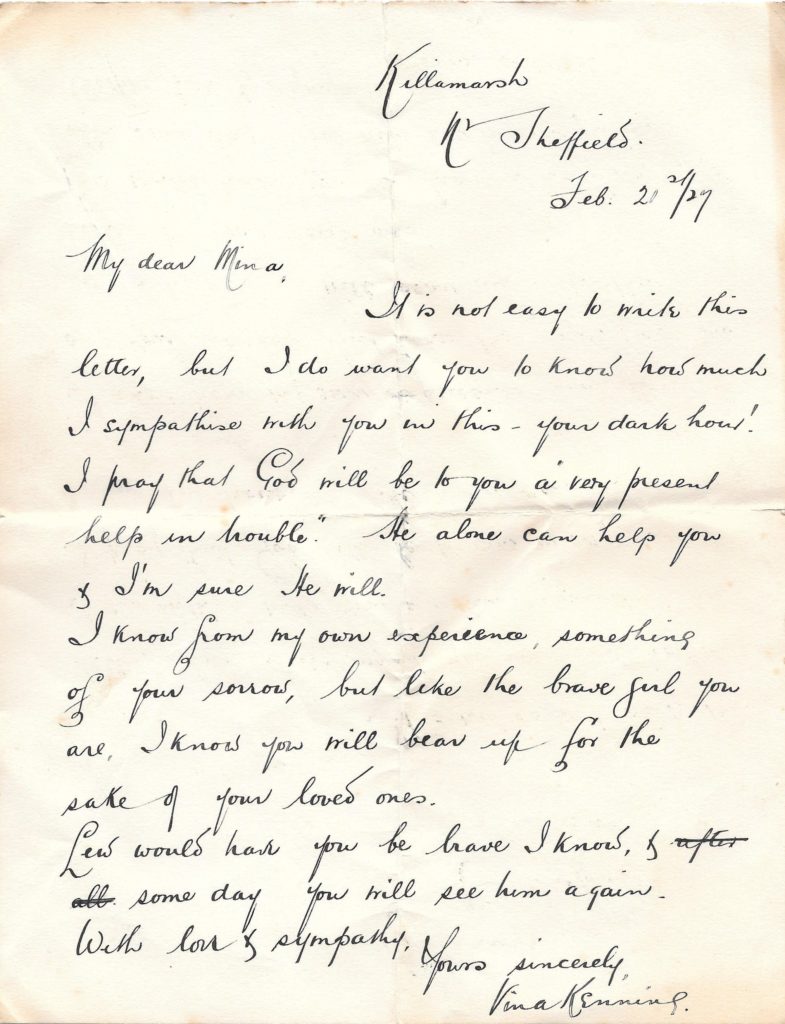 Killamarsh
Nr Sheffield.
Feb. 21st/27
My dear Mina,
It is not easy to write this
letter, but I do want you to know how much
I sympathise with you in this - your dark hour!
I pray that God will be to you a "very present
help in trouble". He alone can help you
& I'm sure He will.
I know from my own experience, something
of your sorrow, but like the brave girl you
are, I know you will bear up for the
sake of your loved ones.
Lew would have you be brave I know, & after
all. some day you will see him again.
With love & sympathy,
Yours sincerely,
Vina Kenning.